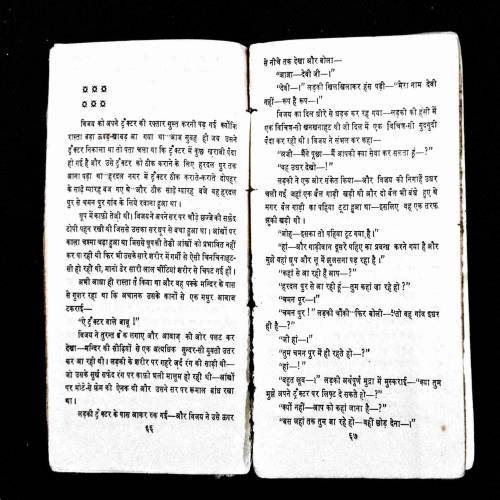 विजय को अपने ट्रैक्टर की रफ्तार सुस्त करनी पड़ गई क्योंकि
रास्ता बड़ा ऊबड़-खाबड़ आ गया था—आज सुबह ही जब उसने
ट्रैक्टर निकाला था तो पता चला था कि ट्रैक्टर में कुछ खराबी पैदा
हो गई है और उसे ट्रैक्टर को ठीक कराने के लिए हरदल पुर तक
आना पड़ा था—हरदल नगर में ट्रैक्टर ठीक कराते-कराते दोपहर
के साढ़े ग्यारह बज गए थे—और ठीक साढ़े ग्यारह बजे वह हरदल
पुर से चमन पुर गांव के लिये रवाना हुआ था।
धूप में काफ़ी तेजी थी। विजय ने अपने सर पर चौड़े छज्जे की सफ़ेद
टोपी पहन रखी थी जिससे उसका सर धूप से बचा हुआ था। आंखों पर
काला चश्मा चढ़ा हुआ था जिससे धूप की तेज़ी आंखों को प्रभावित नहीं
कर पा रही थी फिर भी उसके सारे शरीर में गर्मी से ऐसी चिनचिनाहट-
सी हो रही थी, मानो ढेर सारी लाल चींटियां शरीर से चिपट गई हों।
अभी आधा ही रास्ता तै किया था और वह पक्के मन्दिर के पास
से गुज़र रहा था कि अचानक उसके कानों से एक मधुर आवाज़
टकराई—
"ऐ ट्रैक्टर वाले बाबू !"
विजय ने तुरन्त ब्रेक लगाए और आवाज़ की ओर पलट कर
देखा—मन्दिर की सीढ़ियों से एक अत्यधिक सुन्दर-सी युवती उतर
कर आ रही थी। लड़की के शरीर पर गहरे ज़र्द रंग की साड़ी थी—
जो उसके सुर्ख सफ़ेद रंग पर काफ़ी भली मालूम हो रही थी—आंखों
पर मोटे-से फ्रेम की ऐनक थी और उसने सर पर रूमाल बांध रखा
था।
लड़की ट्रैक्टर के पास आकर रुक गई—और विजय ने उसे ऊपर
६६
से नीचे तक देखा और बोला—
"आज्ञा—देवी जी—।"
"देवी—।" लड़की खिलखिलाकर हंस पड़ी—"मेरा नाम देवी
नहीं—रूप है रूप—।"
विजय का दिल धीरे से धड़क कर रह गया—लड़की की हंसी में
एक विचित्र-सी खनखनाहट थी जो दिल में एक विचित्र-सी गुदगुदी
पैदा कर रही थी। विजय ने संभल कर कहा—
"अजी—मैंने पूछा—मैं आपकी क्या सेवा कर सकता हूं—?"
"वह उधर देखो—!"
लड़की ने एक ओर संकेत किया—और विजय की निगाहें उधर
चली गईं जहां एक बैल गाड़ी खड़ी थी और दो बैल भी बंधे हुए थे
मगर बैल गाड़ी का पहिया टूटा हुआ था—इसलिए वह एक तरफ
झुकी खड़ी थी।
"ओह—इसका तो पहिया टूट गया है।"
"हां—और गाड़ीवान दूसरे पहिए का प्रबन्ध करने गया है और
मुझे यहां धूप और लू में झुलसना पड़ रहा है।"
"कहां से आ रही हैं आप—?"
"हरदल पुर से आ रही हूं—तुम कहां जा रहे हो ?"
"चमन पुर—।"
"चमन पुर !" लड़की चौंकी—फिर बोली—"तो वह गांव इधर
ही है—?"
"जी हां—।"
"तुम चमन पुर में ही रहते हो—?"
"हां—!"
"बहुत खूब—।" लड़की गर्वपूर्ण मुद्रा में मुस्कराई—"क्या तुम
मुझे अपने ट्रैक्टर पर लिफ़्ट दे सकते हो—?"
"क्यों नहीं—आप को कहां जाना है—?"
"बस जहां तक तुम जा रहे हो—वहीं छोड़ देना—।"
६७